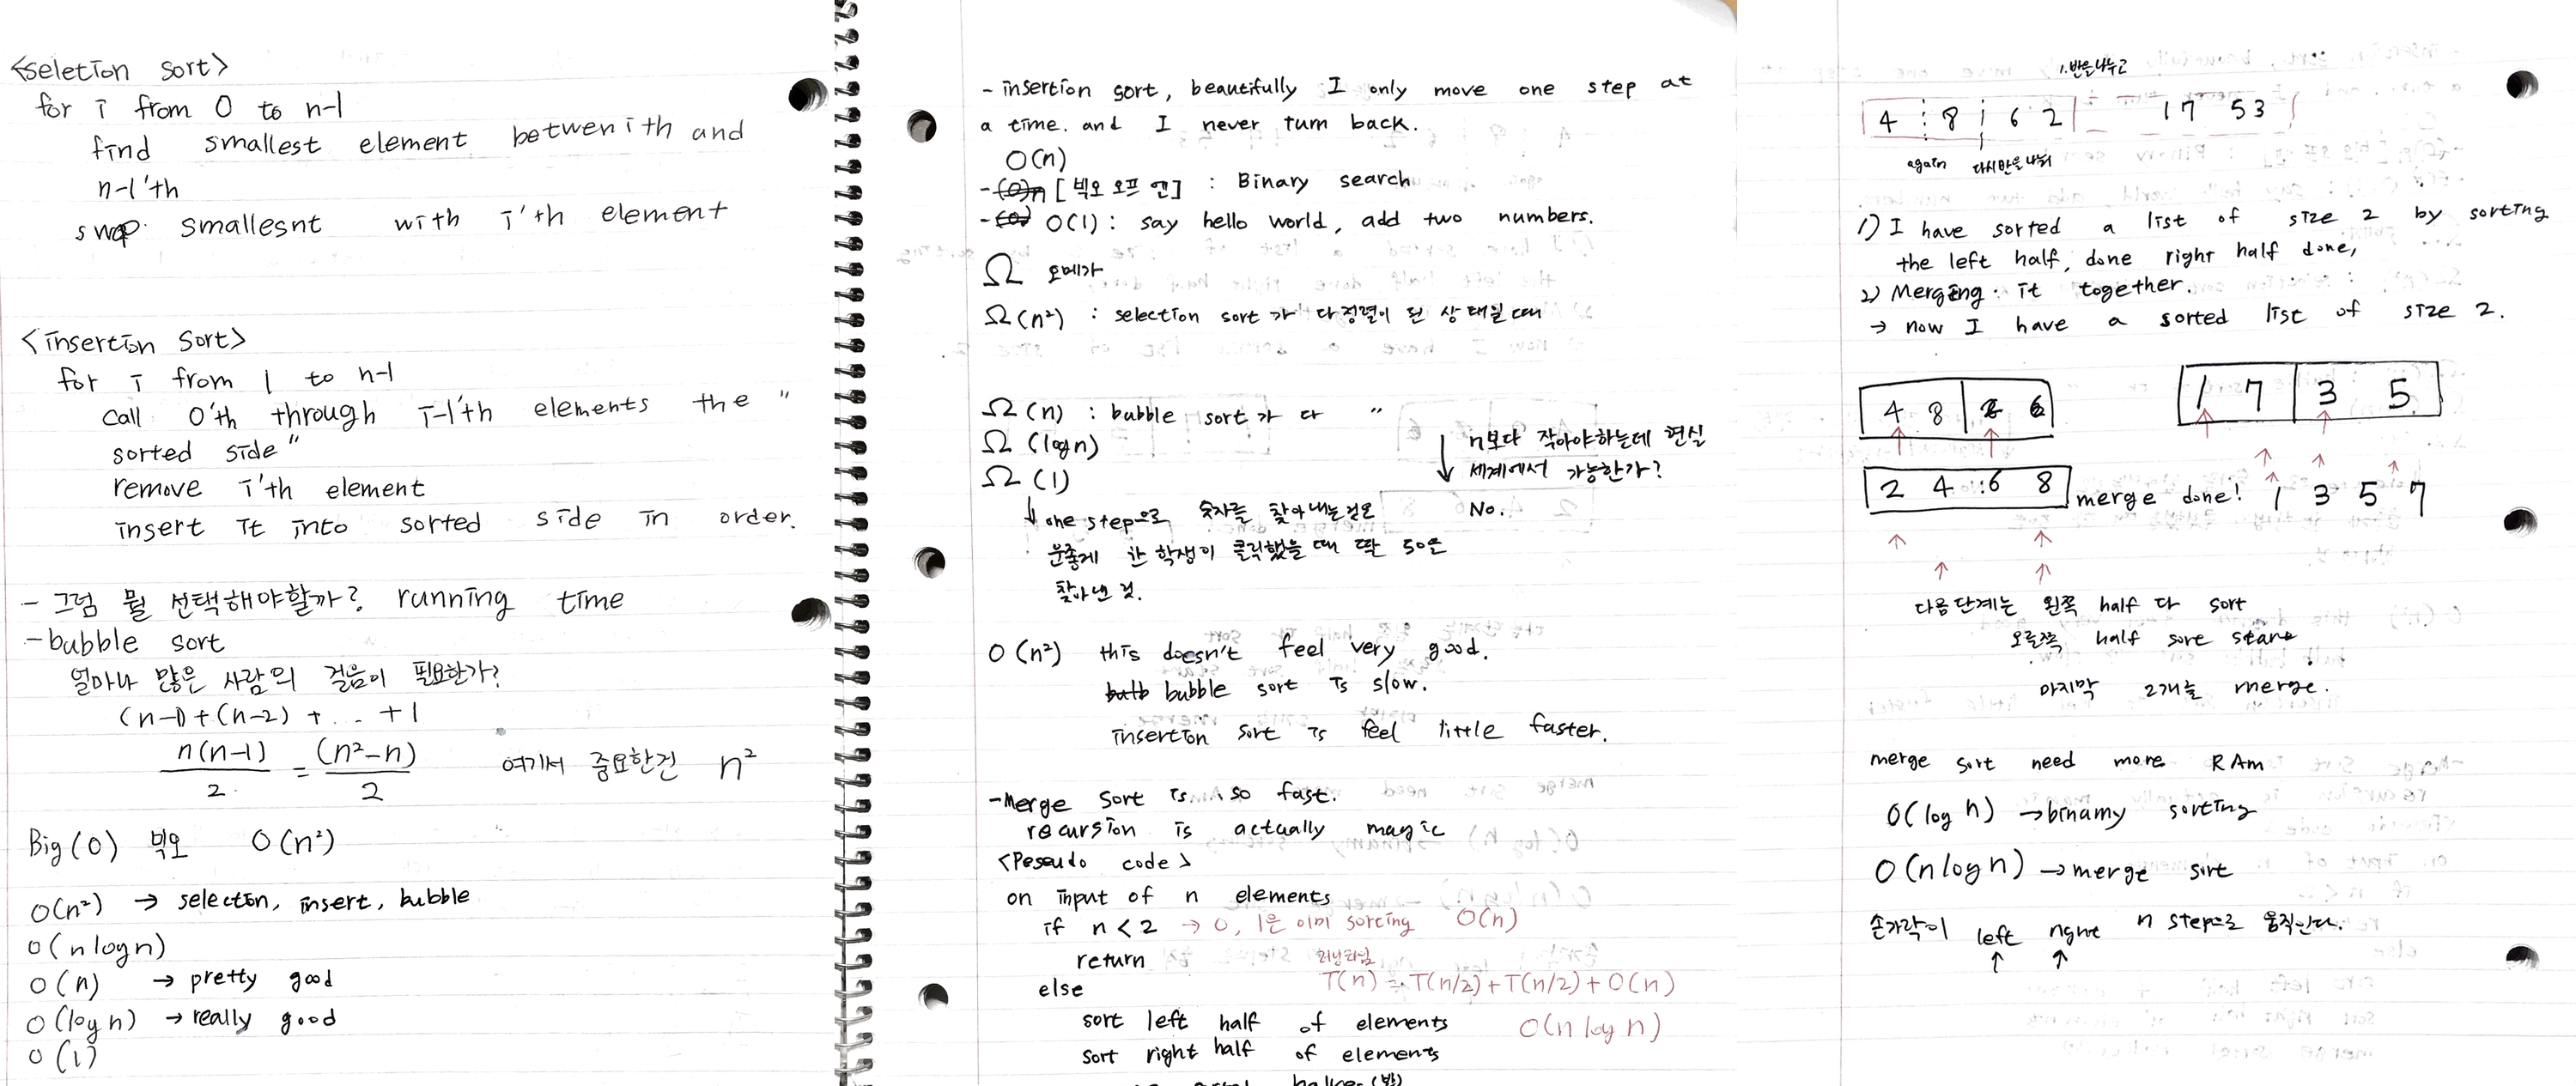 <seletion sort>
for i from 0 to n-1
find smallest element betwen ith and
n-1'th
swap smallesnt with i'th element
<insertion sort>
for i from 1 to n-1
call 0'th through i-1'th elements the "
sorted side"
remove i'th element
insert it into sorted side in order.
- 그럼 뭘 선택해야할까? running time
- bubble sort
얼마나 많은 사람의 걸음이 필요한가?
(n-1)+(n-2) + ... +1
n(n-1)/2 = (n²-n)/2 여기서 중요한건 n²
Big(O) 빅오 O(n²)
O(n²) → selection, insert, bubble
O(n log n)
O(n) → pretty good
O(log n) → really good
O(1)
- insertion sort, beautifully I only move one step at
a time. and I never turn back.
O(n)
- (O)n [빅오 오프 엔] : Binary search
- (O) O(1): say hello world, add two numbers.
Ω 오메가
Ω(n²) : selection sort가 다 정렬이 된 상태일 때
Ω(n) : bubble sort가 다 "
Ω(log n)
Ω(1)
↓ n보다 작아야하는데 현실
세계에서 가능한가?
No.
↓ one step으로 숫자를 찾아내는것은
운좋게 한 학생이 클릭했을 때 딱 50은
찾아낸 것.
O(n²) this doesn't feel very good.
bulb bubble sort is slow.
insertion sort is feel little faster.
-Merge sort is so fast.
recursion is actually magic
<Peseudo code>
on input of n elements
if n < 2 → 0, 1은 이미 sorting O(n)
return
러닝타임
else T(n) = T(n/2)+T(n/2)+O(n)
sort left half of elements O(n log n)
sort right half of elements
1. 반을나누고
4 8 6 2 17 53
again 다시반을나눠
1) I have sorted a list of size 2 by sorting
the left half, done right half done,
2) Merging it together.
→ now I have a sorted list of size 2.
4 8 2 6
1 7 3 5
2 4 6 8 merge done! 1 3 5 7
다음단계는 왼쪽 half 다 sort
오른쪽 half sort start
마지막 2개를 merge.
merge sort need more RAm
O(log n) → binamy sorting
O(n log n) → merge sort
손가락이 left right n step으로 움직인다.